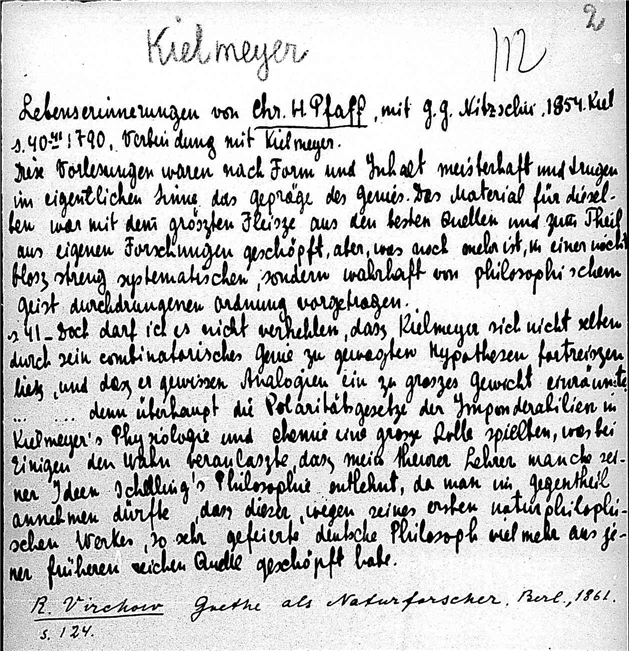 2
Kielmeyer 112
Lebenserinnerungen von Chr. H. Pfaff, mit g. g. Nitzschii. 1854. Kiel
s. 40 1790, Verbindung mit Kielmeyer.
Diese Vorlesungen waren nach Form und Inhalt meisterhaft und trugen
im eigentlichen Sinne das gepräge des genies. Das Material für diesel-
ben war mit dem gröszten Fleisze aus den besten Quellen und zum Theil
aus eigenen Forschungen geschöpft, aber, was noch mehr ist, in einer nicht
blosz streng systematischen, sondern wahrhaft von philosophischem
geist durchdrungenen ordnung vorgetragen.
s 41 – Doch darf ich es nicht verhehlen, dasz Kielmeyer sich nicht selten
durch sein combinatorisches Genie zu gewagten Hypothesen fortreiszen
liesz, und dasz er gewissen Analogien ein zu groszes Gewicht einräumte
... ... denn überhaupt die Polaritätsgesetze der Imponderabilien in
Kielmeyer's Physiologie und chemie eine grosse Rolle spielten, was bei
Einigen den Wahn veranlaszte, dasz mein theurer Lehrer manche sei-
ner Ideen Schelling's Philosophie entlehnt, da man im gegentheil
annehmen dürfte, dass dieser, wegen seines ersten naturphilophi-
schen Werkes, so sehr gefeierte deutsche Philosoph viel mehr aus je-
ner früheren reichen Quelle geschöpft habe.
R. Virchow Goethe als Naturforscher. Berl., 1861.
s. 124.